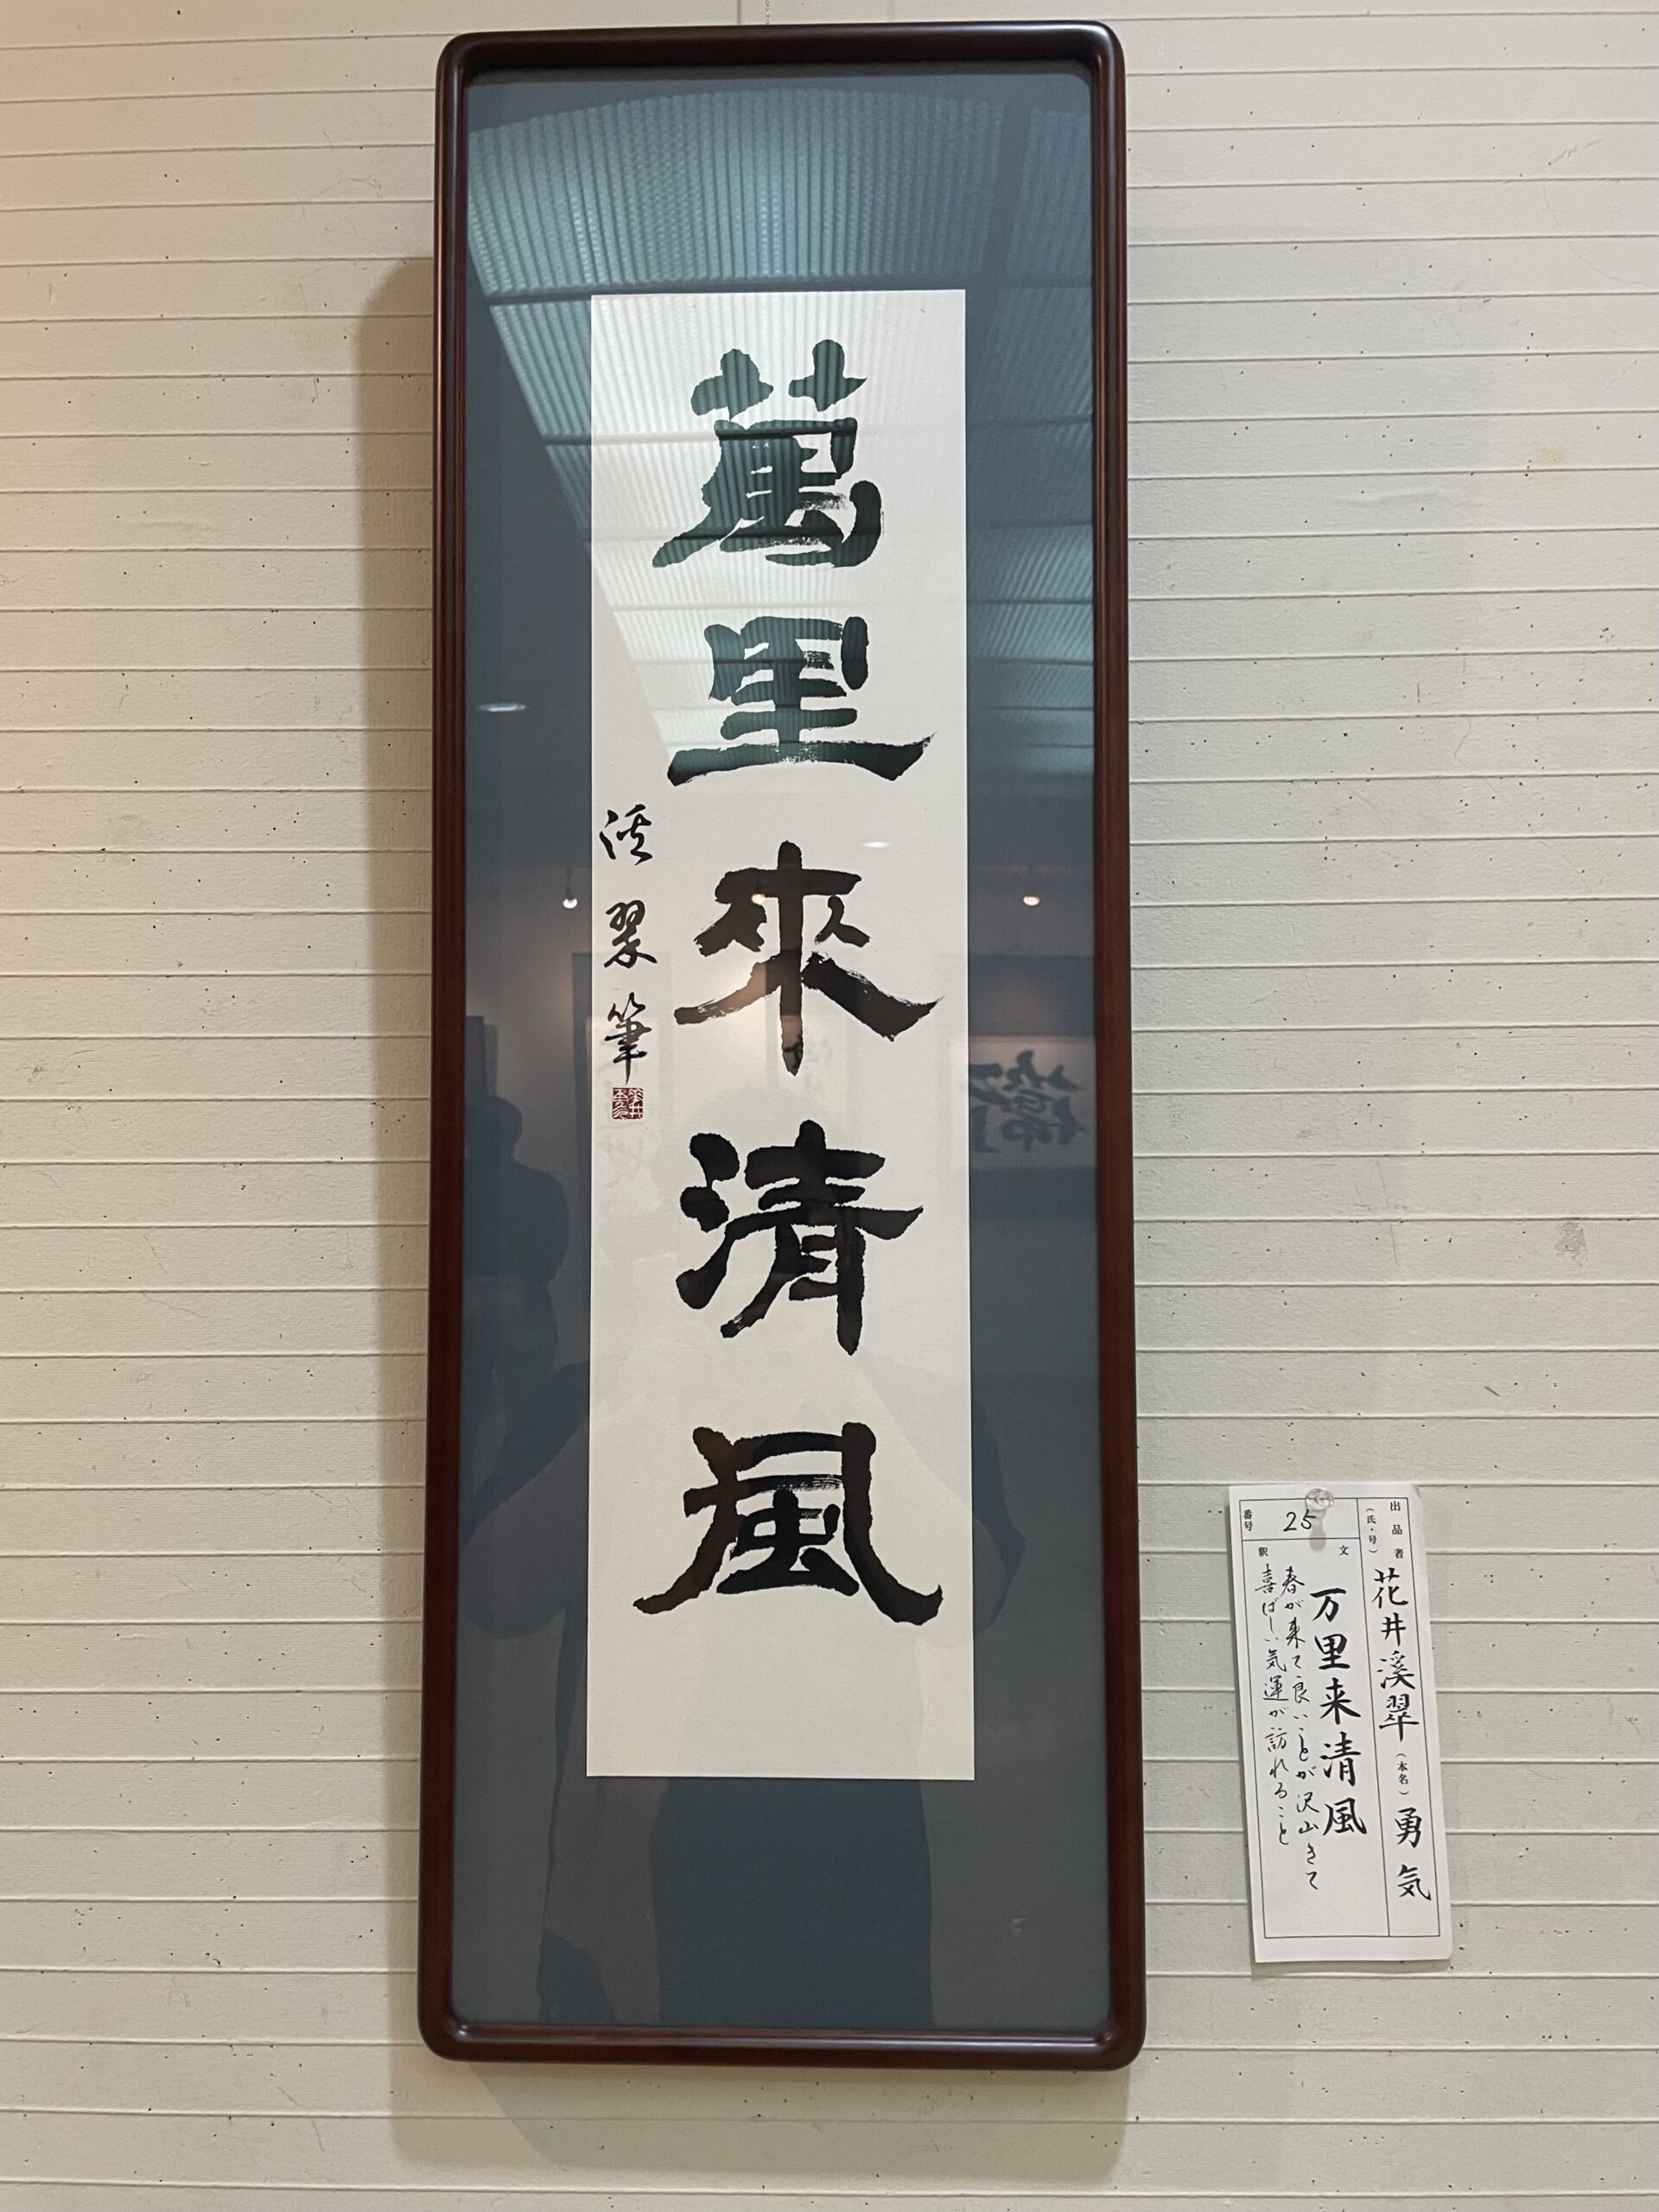 萬里來清風
渓翠筆
出品者
(氏・号)
花井溪翠(本名)勇気
番号
25
釈文
万里来清風
春が来て良いことが沢山きて
喜ばしい気運が訪れること